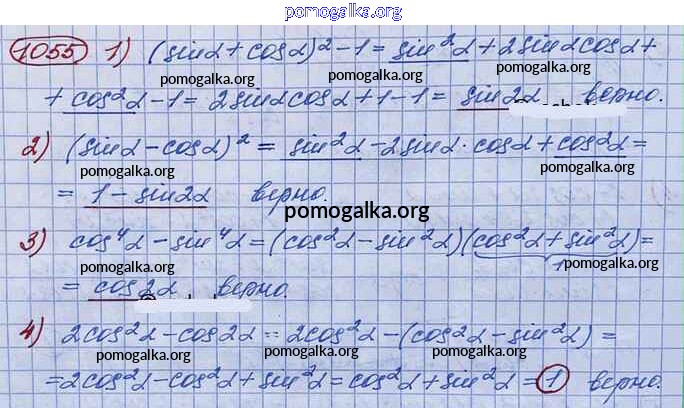 pomogalka.org
1055 1) (sinα + cosα)² − 1 = sin²α + 2sinα cosα +
pomogalka.org pomogalka.org pomogalka.org
+ cos²α − 1 = 2sinα cosα + 1 − 1 = sin2α верно.
2) (sinα − cosα)² = sin²α − 2sinα · cosα + cos²α =
pomogalka.org pomogalka.org pomogalka.org
= 1 − sin2α верно.
pomogalka.org
3) cos⁴α − sin⁴α = (cos²α − sin²α)(cos²α + sin²α) =
pomogalka.org pomogalka.org pomogalka.org
1
= cos2α верно.
4) 2cos²α − cos2α = 2cos²α − (cos²α − sin²α) =
pomogalka.org pomogalka.org pomogalka.org
= 2cos²α − cos²α + sin²α = cos²α + sin²α = 1 верно.
pomogalka.org